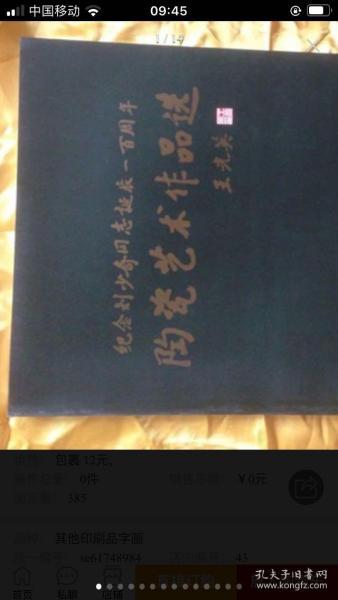 中国移动
09:45
1/14
纪念刘少奇同志诞辰一百周年
陶瓷艺术作品选
王光英
包裹 12元,
0件
¥0元
385
其他印刷品字画
se61748984
43
首页
私聊
店铺
孔夫子旧书网
www.kongfz.com